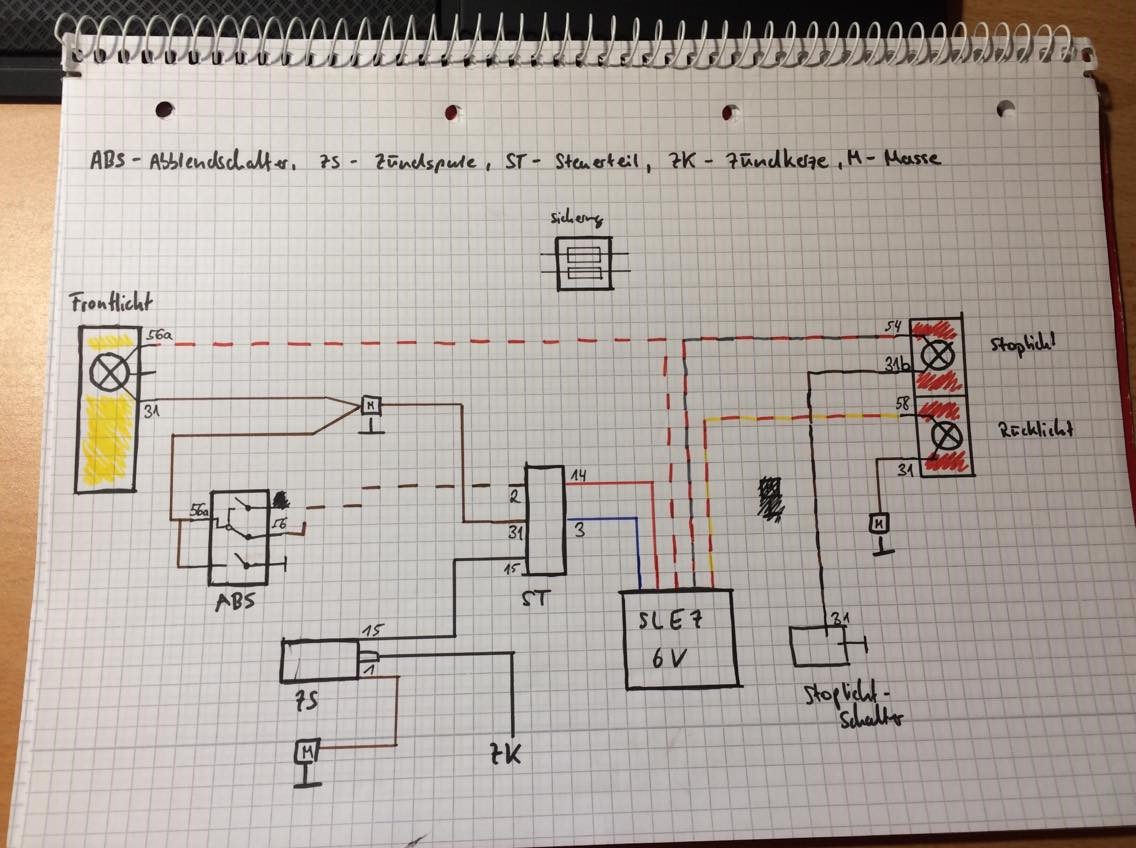 ABS - Abblendschalter, ZS - Zündspule, ST - Steuerteil, ZK - Zündkerze, M - Masse
Sicherung
Frontlicht
56a
31
M
54
31b
Stoplicht
58
31
Rücklicht
M
56a
56
ABS
2
31
15
14
3
ST
SLEZ
6V
31
Stoplicht-
Schalter
15
1
ZS
M
ZK